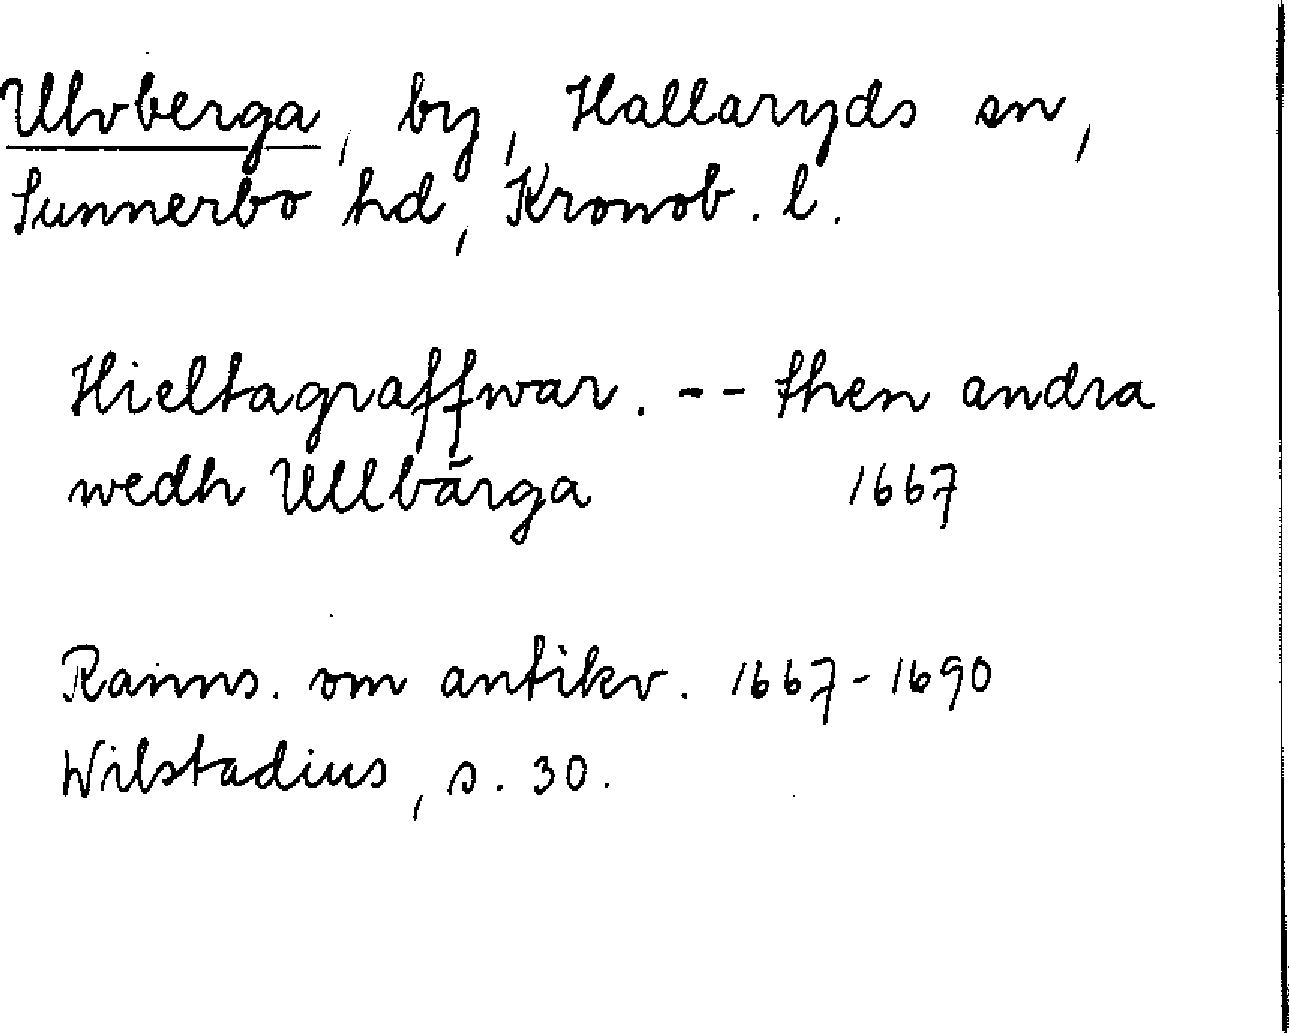 Ulvberga, by, Hallaryds sn,
Sunnerbo hd, Kronob. l.
Hieltagraffwar. -- then andra
wedh Ullbärga 1667
Ranns. om antikv. 1667-1690
Wilstadius, s. 30.